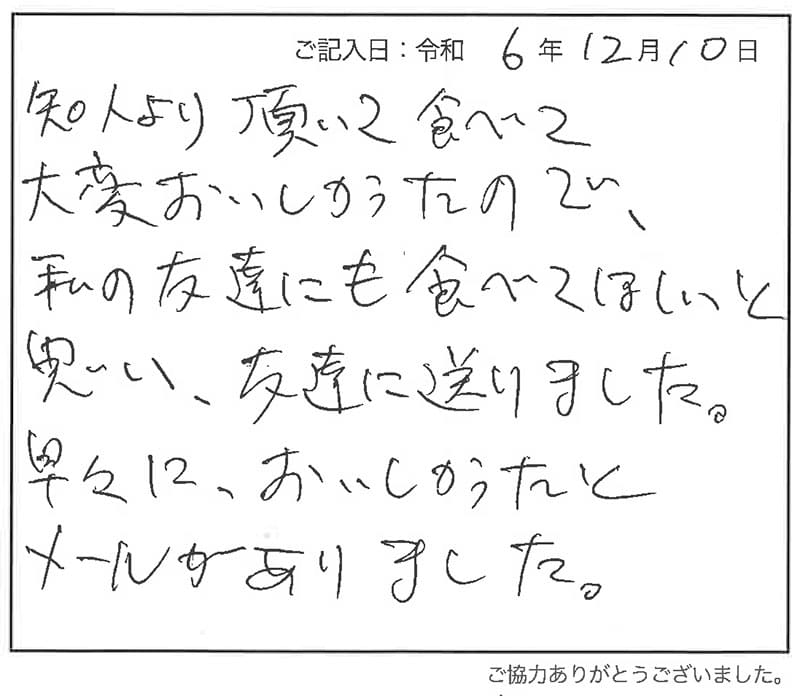 ご記入日：令和 6年 12月10日
知人より頂いて食べて
大変おいしかったので、
私の友達にも食べてほしいと
思い、友達に送りました。
早々に、おいしかったと
メールがありました。
ご協力ありがとうございました。